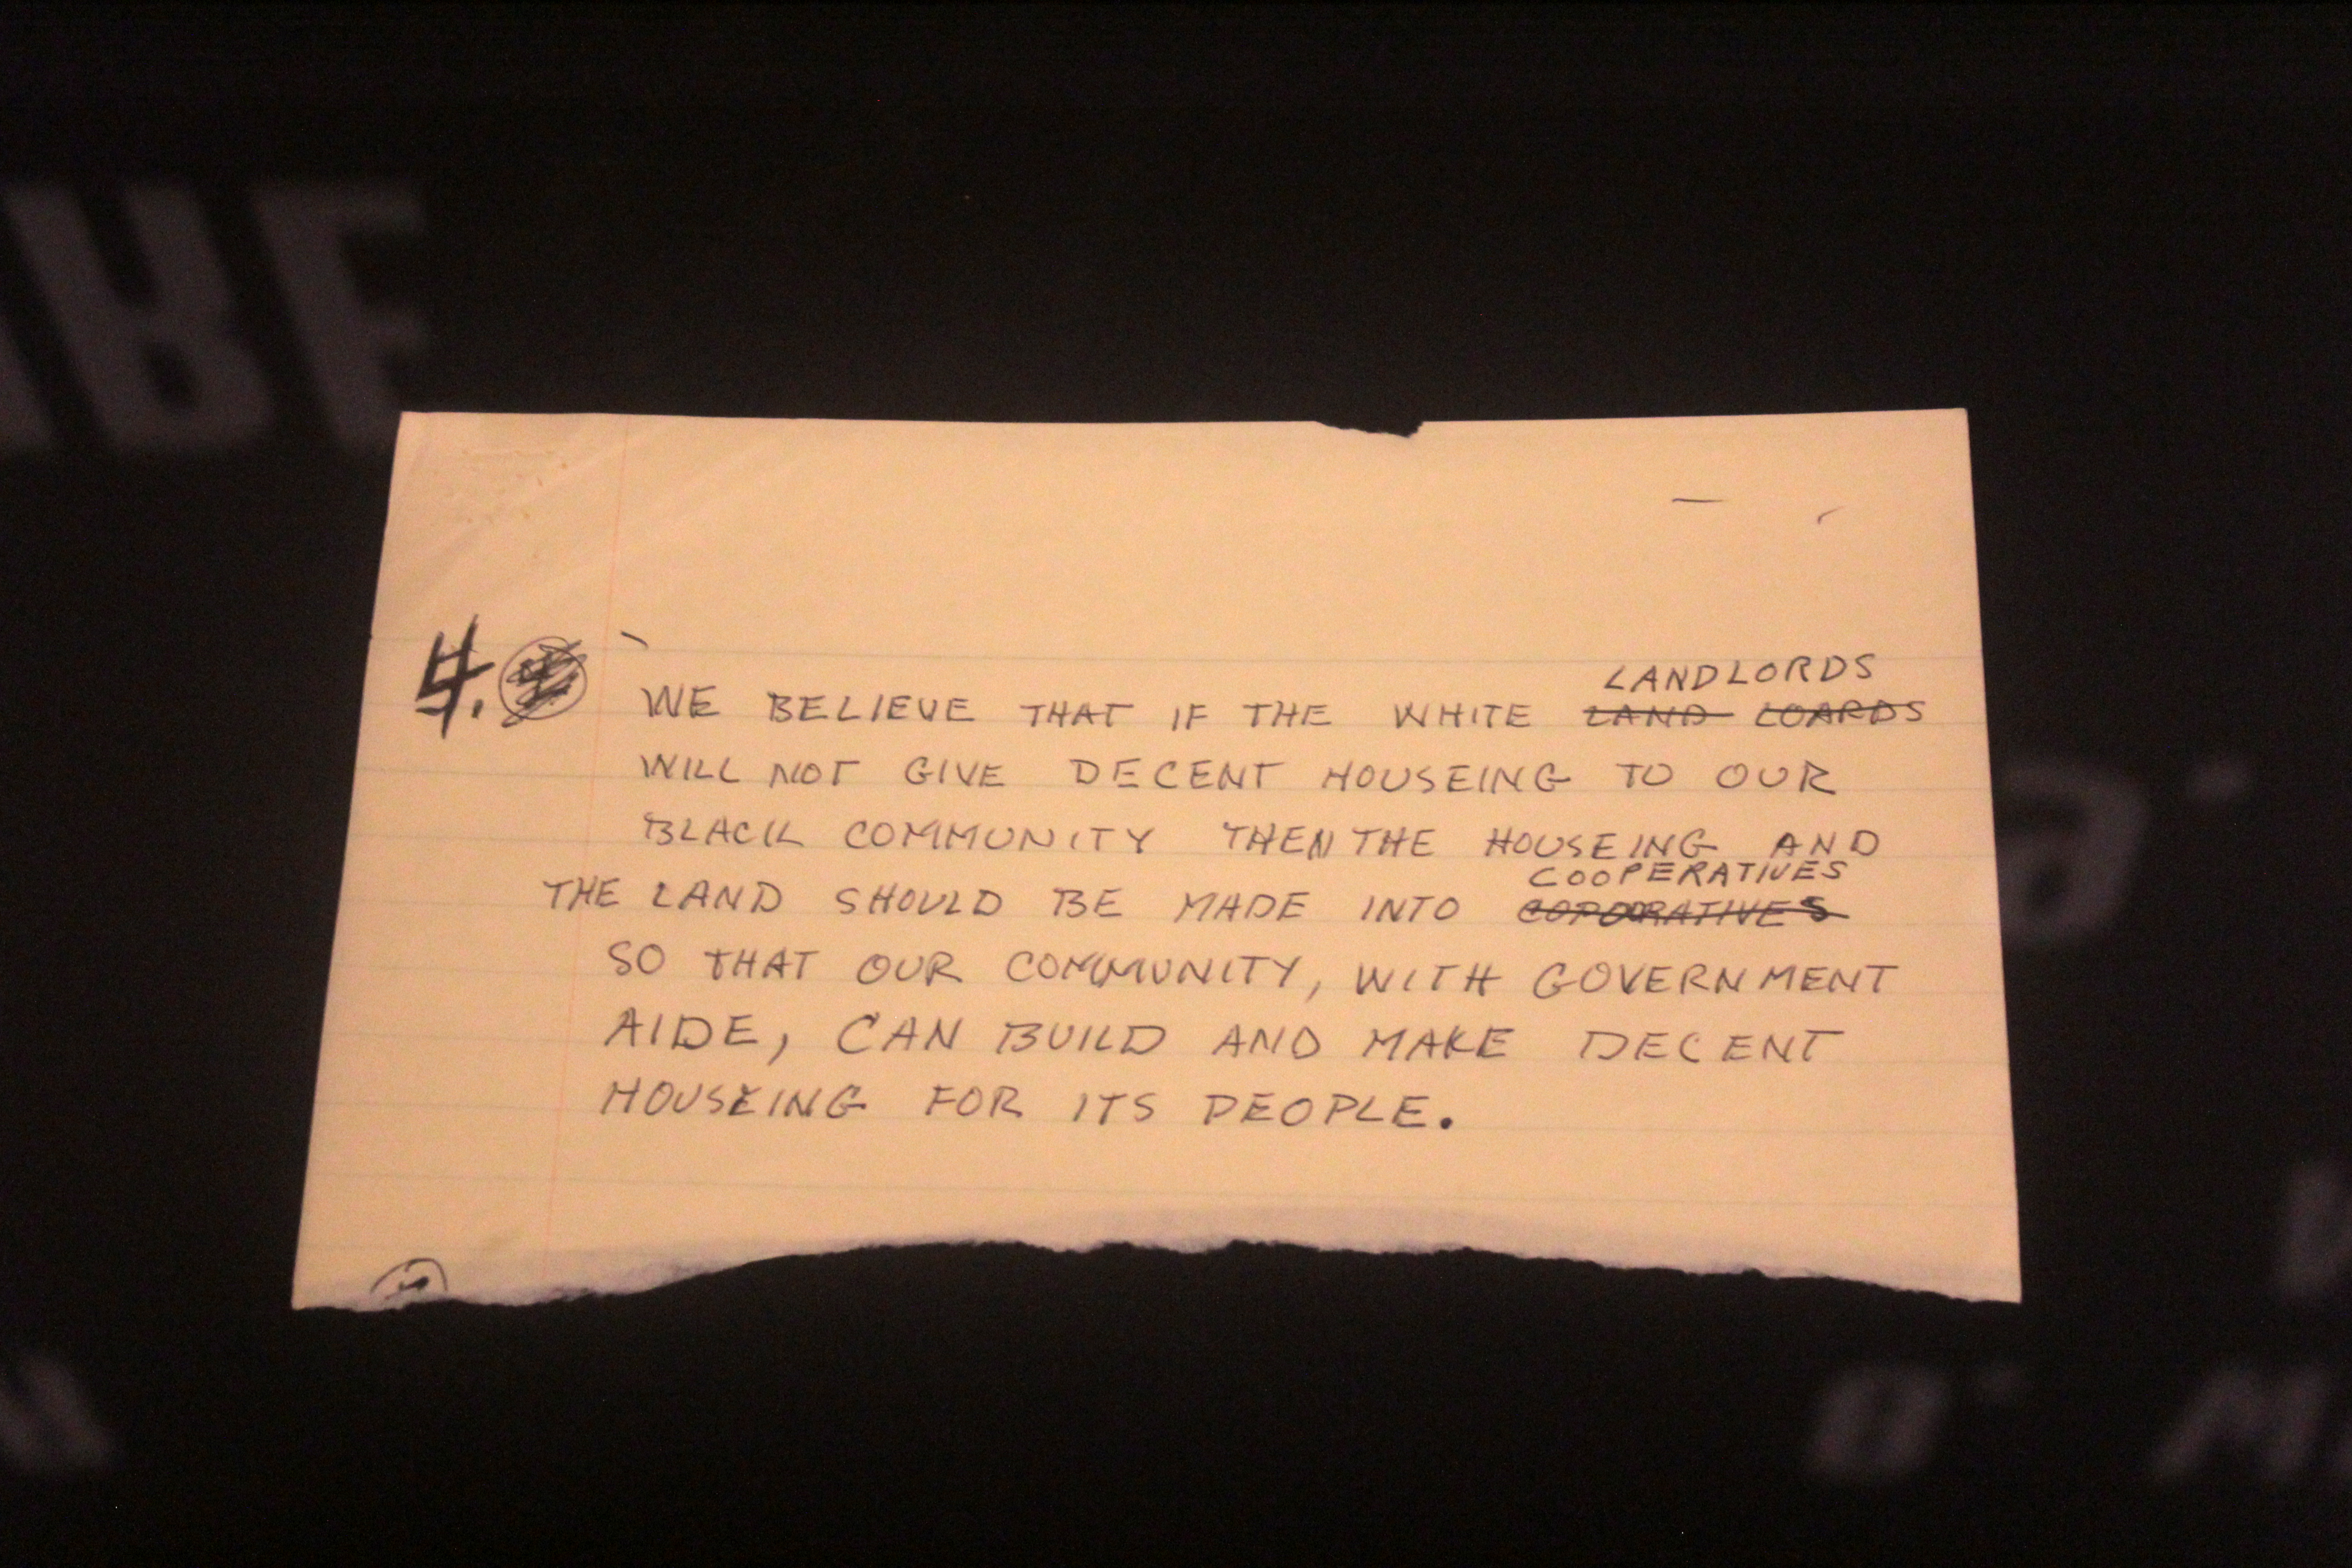 4. WE BELIEVE THAT IF THE WHITE LAND LOARDS
LANDLORDS
WILL NOT GIVE DECENT HOUSEING TO OUR
BLACK COMMUNITY THEN THE HOUSEING AND
COOPERATIVES
THE LAND SHOULD BE MADE INTO
SO THAT OUR COMMUNITY, WITH GOVERNMENT
AIDE, CAN BUILD AND MAKE DECENT
HOUSEING FOR ITS PEOPLE.